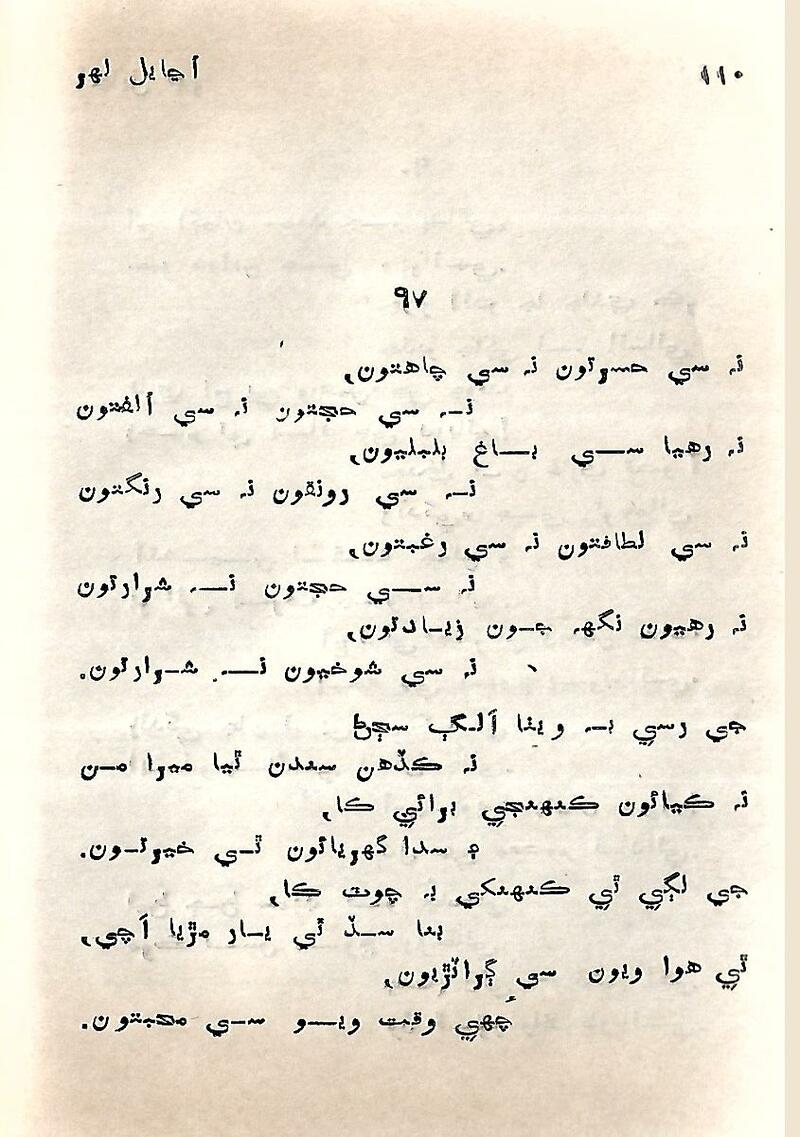 ۱۱۰ اڇايل لهر
۹۷
نہ سي حسرتون نہ سي چاهتون،
نہ سي حجتون نہ سي الفتون
نہ رهيا سي باغ بلبليون،
نہ سي رونقون نہ سي رنگتون
نہ سي لطافتون نہ سي رغبتون،
نہ سي حجتون نہ شرارتون
نہ رهيون نگهہ جون زيادتون،
نہ سي شوخيون نہ شرارتون.
جي رسي بہ ويٺا الڳ سڄڻ
نہ ڪڏهن سندن ٿيا ميرا من
نہ ڪيائون ڪنهنجي برائي ڪا،
۾ سدا گهريائون ٿي خيرتون.
جي لڳي ٿي ڪنهنکي بہ چوٽ ڪا،
بنا سڏ ٿي يار مڙيا اچي،
ٿي هوا ويون سي ڳراٽڙيون،
ڇهي وقت ويو سي محبتون.